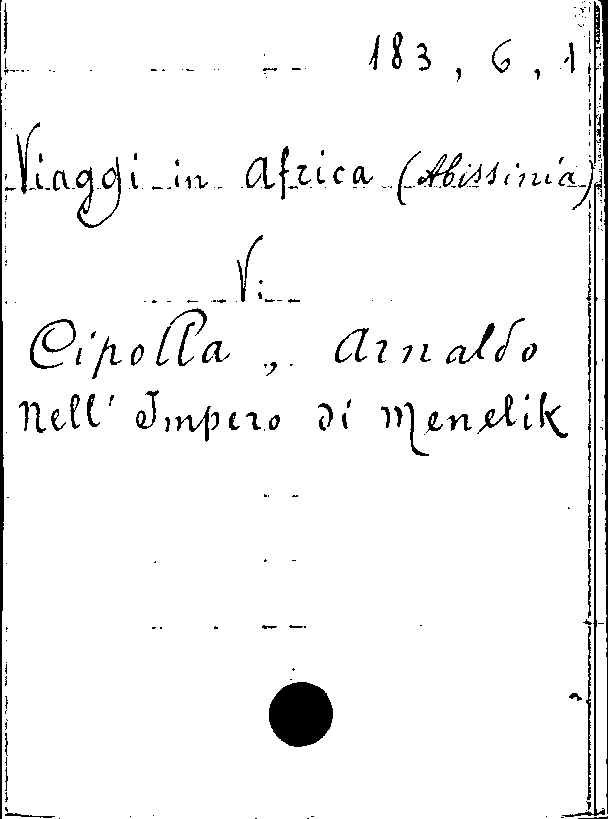 183, 6, 1
Viaggi in Africa (Abissinia)
V:
Cipolla, Arnaldo
Nell' Impero di Menelik